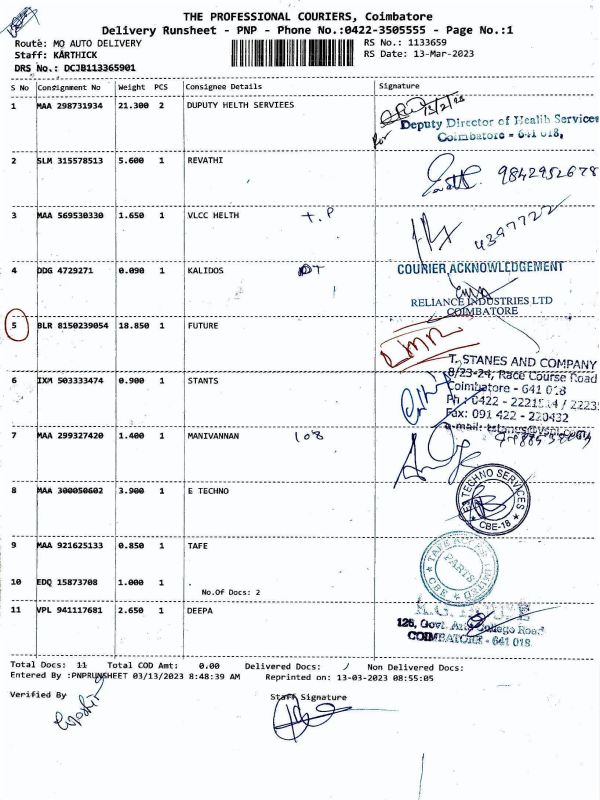 THE PROFESSIONAL COURIERS, Coimbatore
Delivery Runsheet - PNP - Phone No.:0422-3505555 - Page No.:1
Route: MO AUTO DELIVERY RS No.: 1133659
Staff: KARTHICK RS Date: 13-Mar-2023
DRS No.: DCJB113365901
S No Consignment No Weight PCS Consignee Details Signature
1 MAA 298731934 21.300 2 DUPUTY HELTH SERVIEES
for Deputy Director of Health Services
Coimbatore - 641 018.
2 SLM 315578513 5.600 1 REVATHI
9842952678
3 MAA 569530330 1.650 1 VLCC HELTH T.P
4397722
4 DDG 4729271 0.090 1 KALIDOS DT
COURIER ACKNOWLEDGEMENT
RELIANCE INDUSTRIES LTD
COIMBATORE
5 BLR 8150239054 18.850 1 FUTURE
6 IXM 503333474 0.900 1 STANTS
T. STANES AND COMPANY
8/23-24, Race Course Road
Coimbatore - 641 018
Fax: 091 422 - 220432
7 MAA 299327420 1.400 1 MANIVANNAN 108
8 MAA 300050602 3.900 1 E TECHNO
TECHNO SERVICES
CBE-18
9 MAA 921625133 0.850 1 TAFE
PARTS
CBE
10 EDQ 15873708 1.000 1
No.Of Docs: 2
11 VPL 941117681 2.650 1 DEEPA
126, Govt. Arts College Road
COIMBATORE - 641 018.
Total Docs: 11 Total COD Amt: 0.00 Delivered Docs: Non Delivered Docs:
Entered By :PNPRUNSHEET 03/13/2023 8:48:39 AM Reprinted on: 13-03-2023 08:55:05
Verified By Staff Signature